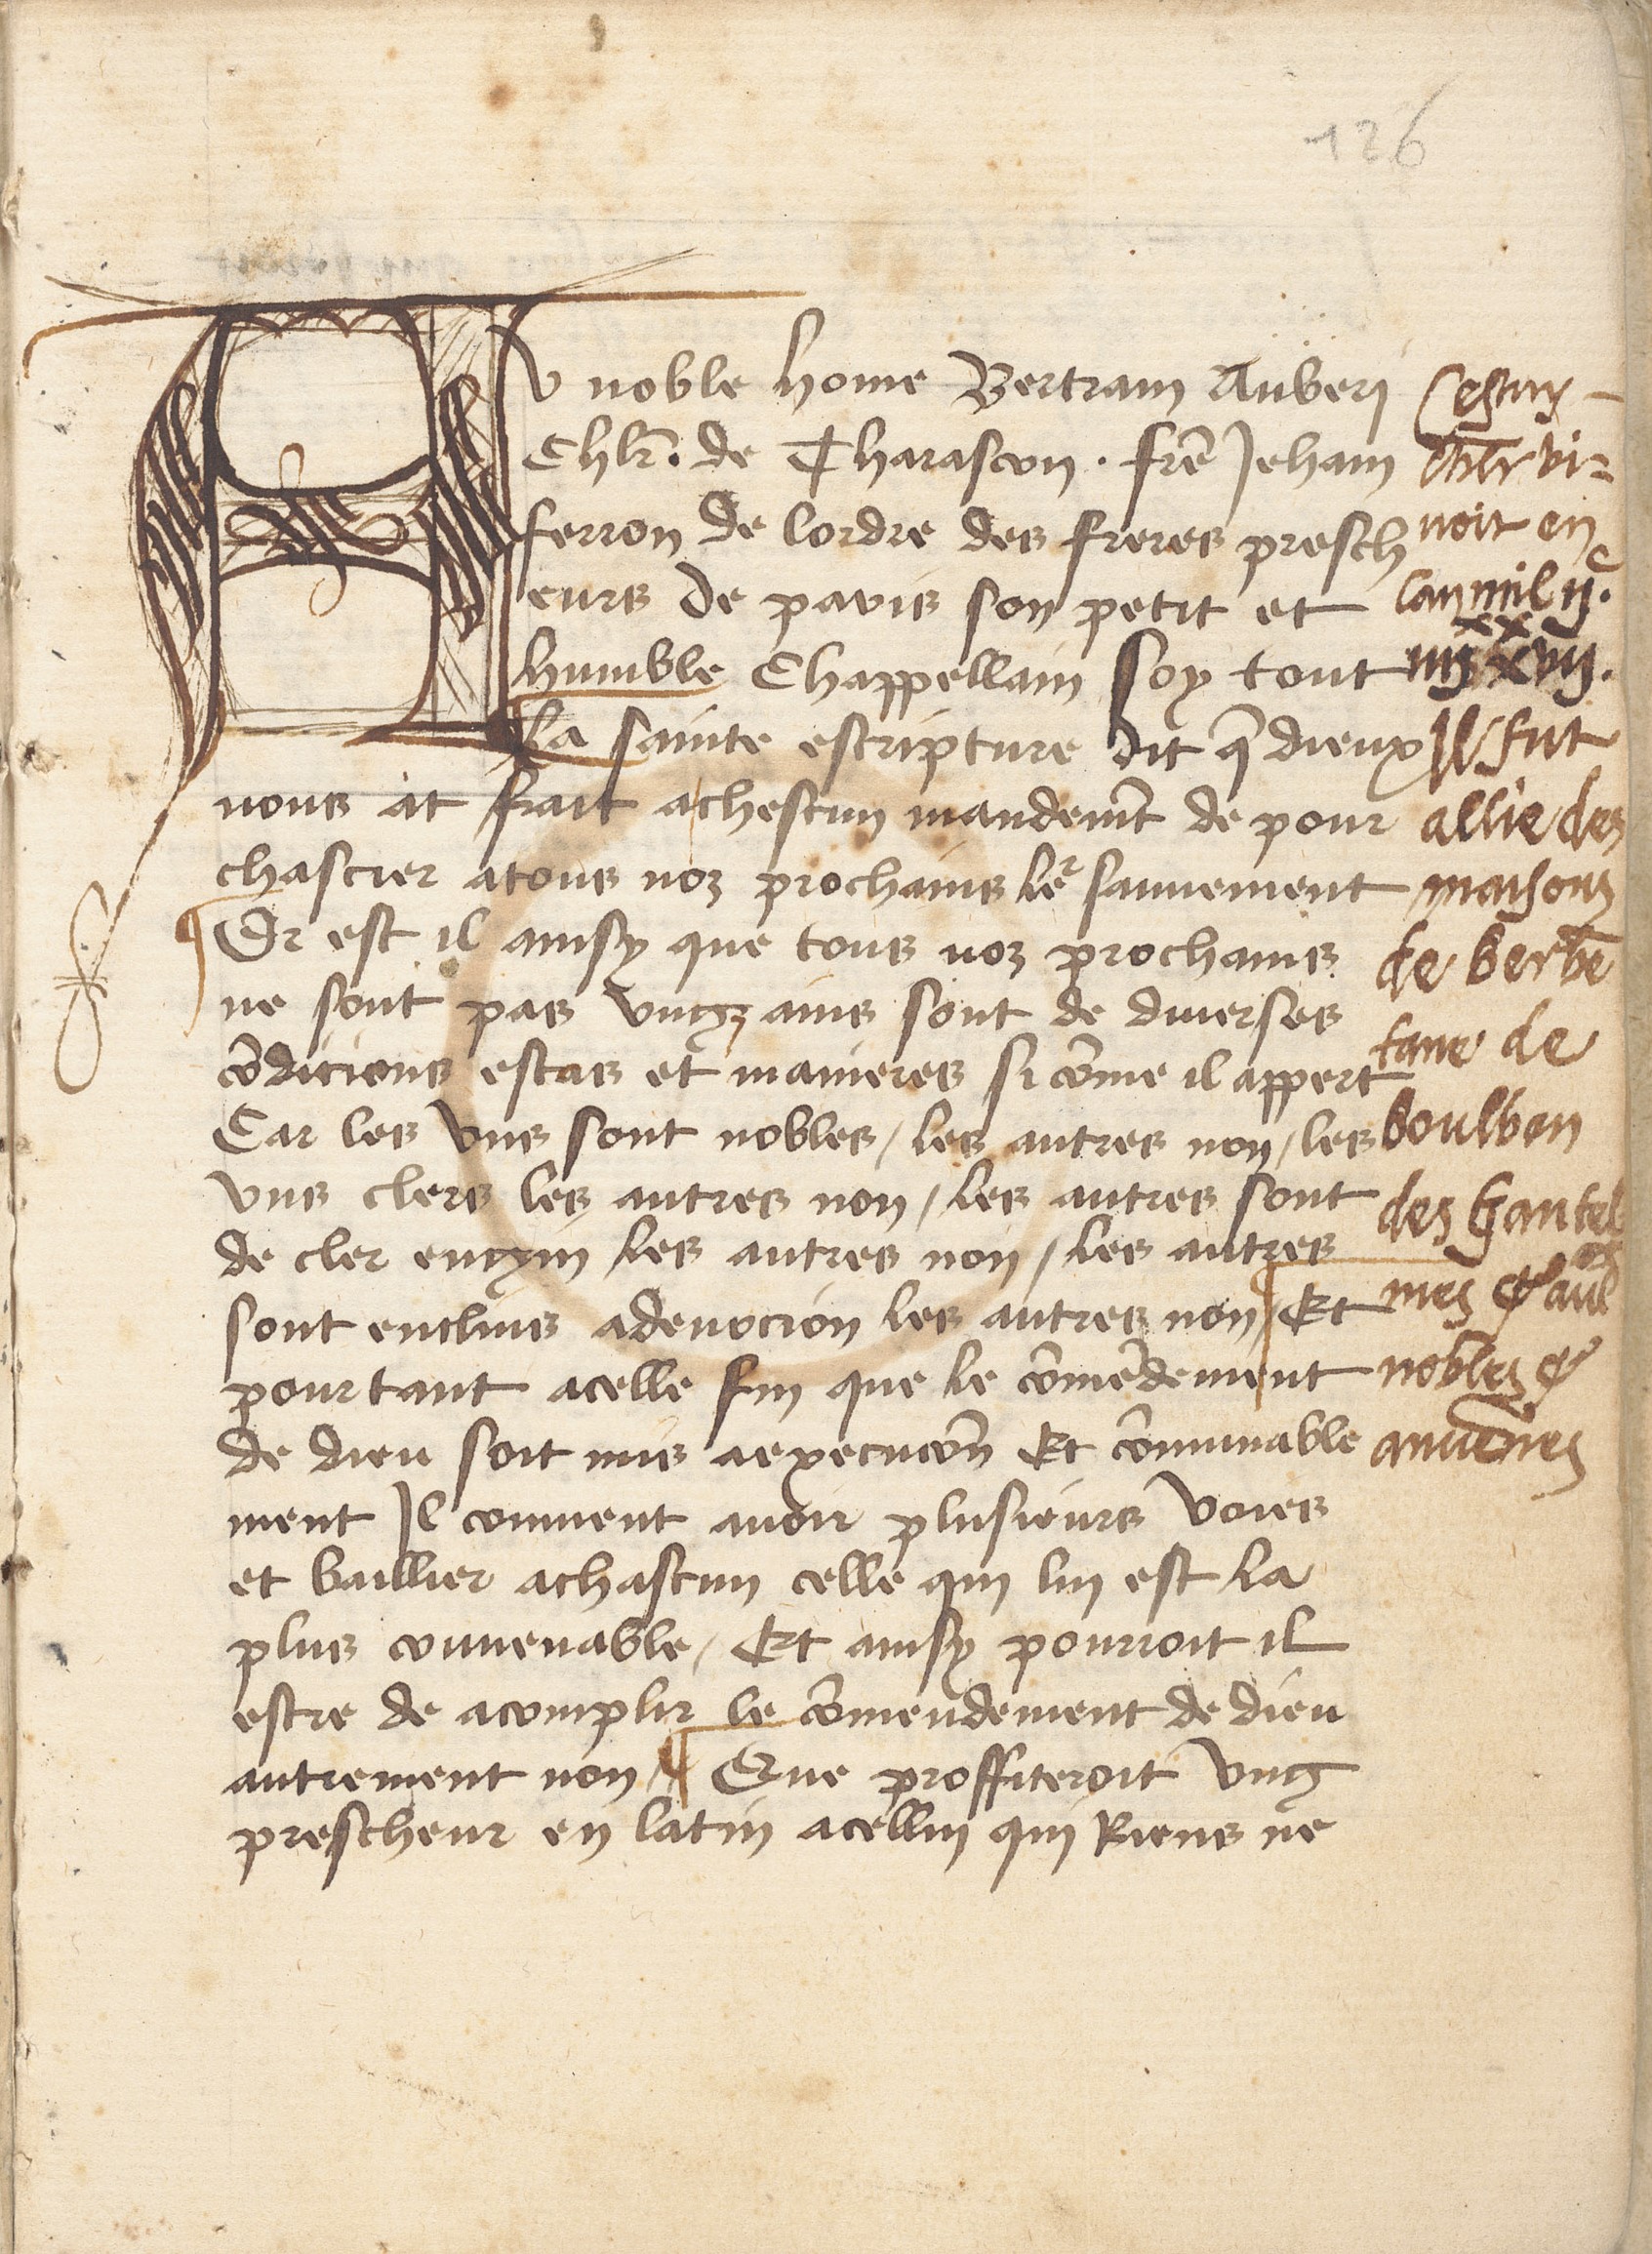 126
Au noble home Bertram Auberi
Chlr̄. de Tharascon . fre͂ Jeham
ferron de lordre des freres presch
eurs de paris son petit et
humble Chappellain soy tout
La sainte escripture dit q̄ dieux
nous at frait achescun mandem̄t de pour
chascier atous noz prochains le͛ sauuement
Or est il ainsy que tous noz prochains
ne sont pas vngz ains sont de diuerses
cōdicions estas et manieres si cōme il appert
Car les vns sont nobles / les autres non / les
vns clers les autres non / les autres sont
de cler engyin les autres non / les autres
sont enclins adeuocion les autres non / Et
pour tant acelle fin que le cōmēdement
de dieu soit mis aexecucōn Et cōmunable
ment Il conuient auoir plusieurs voies
et baillier achascun celle qui lui est la
plus conuenable / Et ainsy pourroit il
estre de acomplir le cōmendement de dieu
autrement non / Que proffiteroit vng
prescheur en latin acellui qui Riens ne
Cestuy
vi=
uoit en
lan mil ij.c
iiij xx xvij.
Il fut
allie des
maisons
de berbe
tane de
boulbon
des Gantel
mes et
nobles et